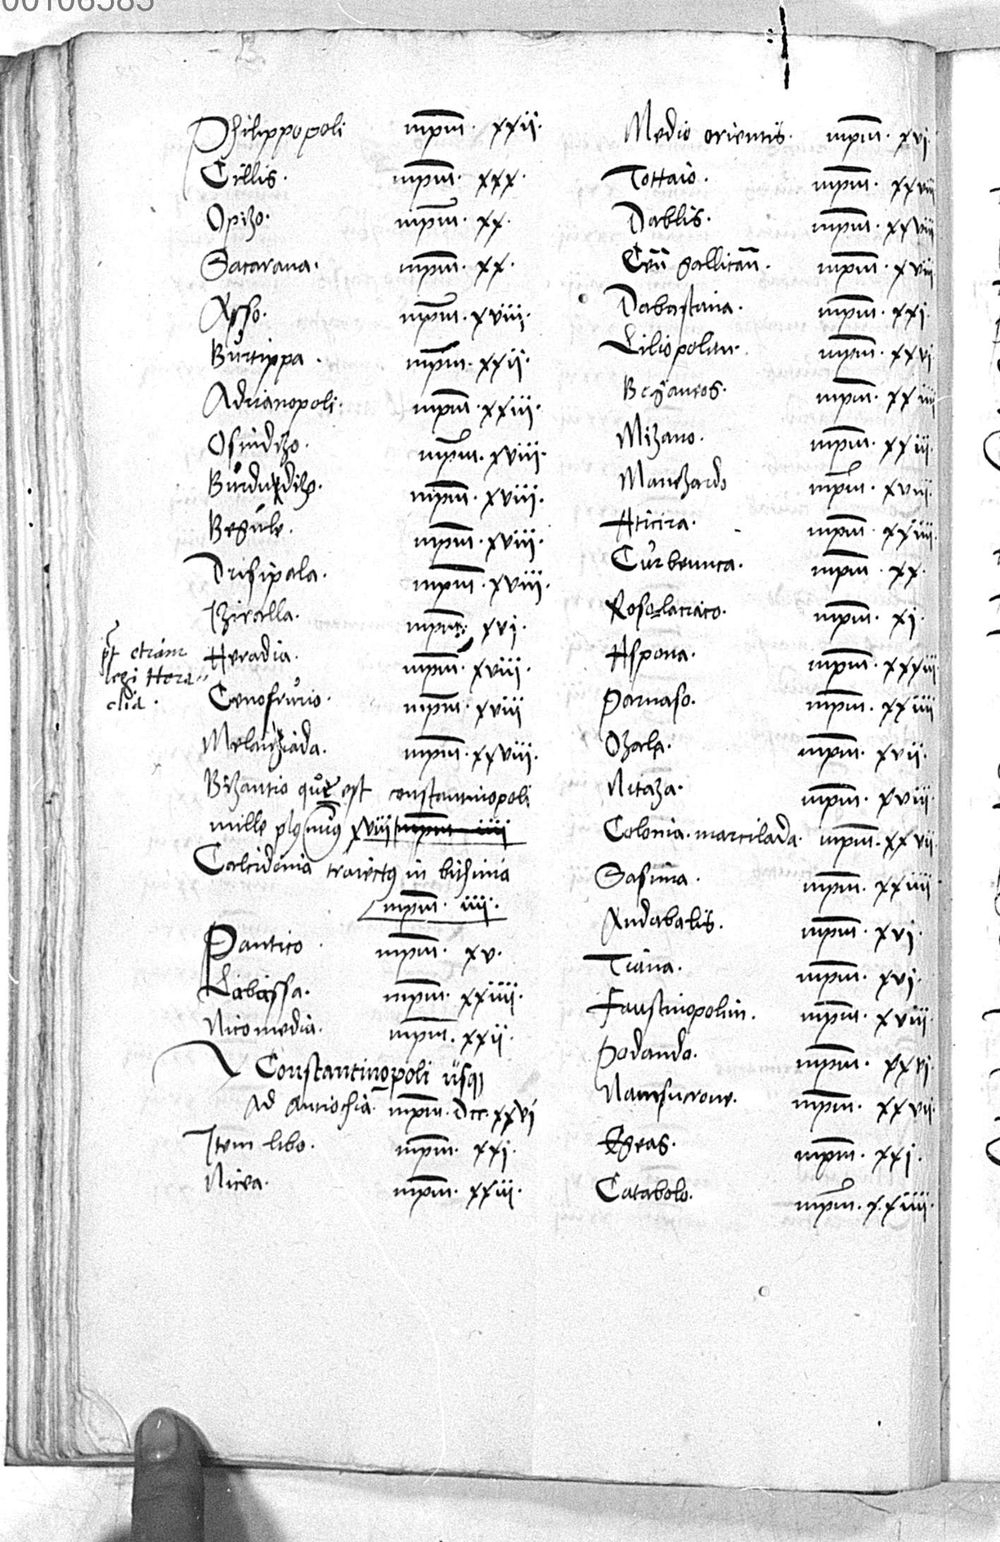 00106385
Philippopoli mpm. xxii.
Cillis. mpm. xxx.
Opizo. mpm. xx.
Sacarana. mpm. xx.
Apso. mpm. xviii.
Burtippa. mpm. xxii.
Adrianopoli. mpm. xxiii.
Osindizo. mpm. xviii.
Burdudilz. mpm. xviii.
Begule. mpm. xviii.
Drisipala. mpm. xviii.
Iziralla. mpm. xvi.
Heradia. mpm. xviii.
pt etiam
legi Hera
clia.
Cenofrurio. mpm. xviii
Melanziada. mpm. xxviii.
Bizantio que est constantinopoli
mille pls xviii mpm iiii
Calcidonia traiectus in bithinia
mpm. iiii.
Pantico mpm. xv.
Libassa. mpm. xxiiii.
Nicomedia. mpm. xxii.
Constantinopoli usq
Ad Antiochia. mpm. Dcc. xxvi
Item libo. mpm. xxi.
Nicea. mpm. xxiii.
Medio orientis. mpm. xvi
Tottaio. mpm. xxviii
Dablis. mpm. xxviii
Cen gallican. mpm. xviii
Dabastana. mpm. xxi.
Liliopolan. mpm. xxvi
Beganeos. mpm. xxiiii
Mizano. mpm. xxiii.
Manezardo mpm. xviii.
Aticira. mpm. xxiiii.
Curbeunca. mpm. xx.
Rosolaciaco. mpm. xi.
Aspona. mpm. xxxiii
Parnaso. mpm. xxiiii
Ozala. mpm. xvii.
Nitaza. mpm. xviii.
Colonia. marcilada. mpm. xxvii.
Sasima. mpm. xxiiii.
Andabalis. mpm. xvi.
Tiana. mpm. xvi.
Faustinopolin. mpm. xviii.
Podando. mpm. xxvi
Namsucrone. mpm. xxvii.
Egeas. mpm. xxi.
Catabolo. mpm. xxiiii.